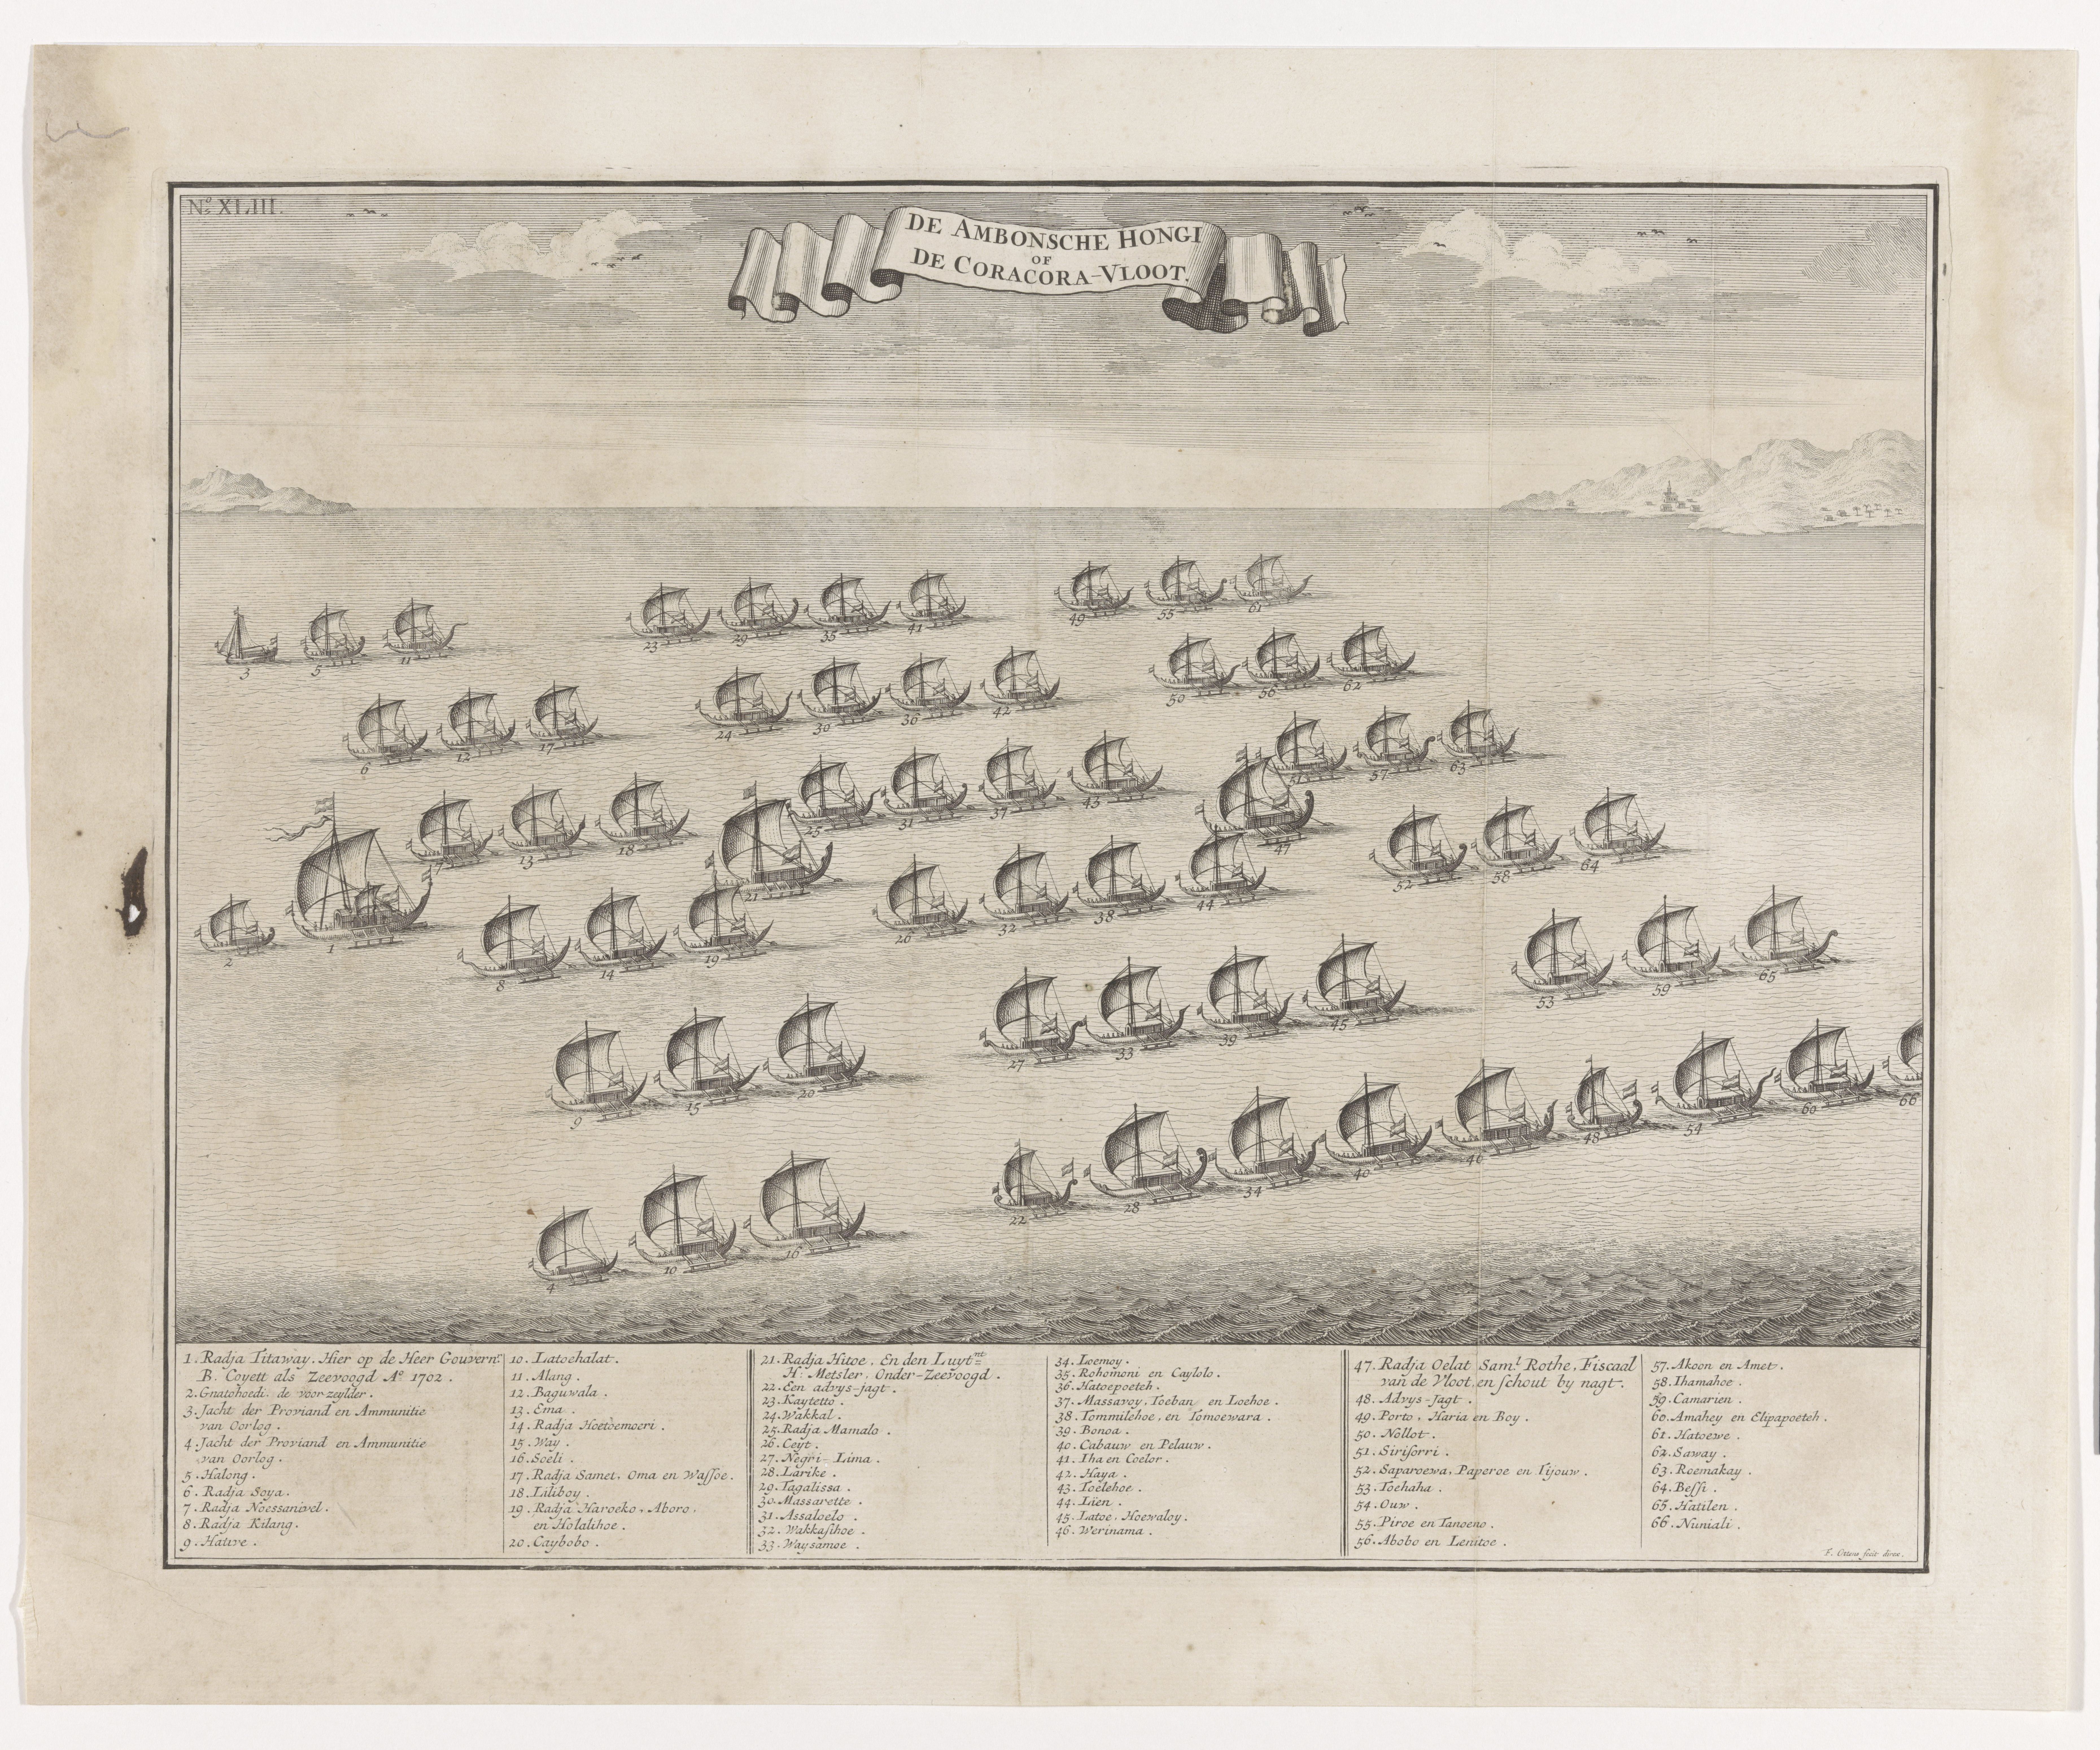 No. XLIII.
DE AMBONSCHE HONGI
OF
DE CORACORA-VLOOT.
3
5
11
23
29
35
41
49
55
61
6
12
17
24
30
36
42
50
56
62
7
13
18
25
31
37
43
51
57
63
2
1
8
14
19
21
26
32
38
44
47
52
58
64
9
15
20
27
33
39
45
53
59
65
4
10
16
22
28
34
40
46
48
54
60
66
1. Radja Titaway. Hier op de Heer Gouvernr.
B. Coyett als Zeevoogd Ao. 1702.
2. Gnatohoedi, de voor-zeylder.
3. Jacht der Proviand en Ammunitie
van Oorlog.
4. Jacht der Proviand en Ammunitie
van Oorlog.
5. Halong.
6. Radja Soya.
7. Radja Noessanivel.
8. Radja Kilang.
9. Hative.
10. Latoehalat.
11. Alang.
12. Baguwala.
13. Ema.
14. Radja Hoetoemoeri.
15. Way.
16. Soeli.
17. Radja Samet, Oma en Wassoe.
18. Liliboy.
19. Radja Haroeko, Aboro,
en Holalihoe.
20. Caybobo.
21. Radja Hitoe, En den Luytnt.
H. Metsler, Onder-Zeevoogd.
22. Een advys-jagt.
23. Kaytetto.
24. Wakkal.
25. Radja Mamalo.
26. Ceyt.
27. Negri-Lima.
28. Larike.
29. Tagalissa.
30. Massarette.
31. Assaloelo.
32. Wakkasihoe.
33. Waysamoe.
34. Loemoy.
35. Rohomoni en Caylolo.
36. Hatoepoeteh.
37. Massavoy, Toeban en Loehoe.
38. Tommilehoe, en Tomoewara.
39. Bonoa.
40. Cabauw en Pelauw.
41. Iha en Coelor.
42. Haya.
43. Toelehoe.
44. Lien.
45. Latoe, Hoewaloy.
46. Werinama.
47. Radja Oelat Saml. Rothe, Fiscaal
van de Vloot, en schout by nagt.
48. Advys-Jagt.
49. Porto, Haria en Boy.
50. Nollot.
51. Sirisorri.
52. Saparoewa, Paperoe en Tijouw.
53. Toehaha.
54. Ouw.
55. Piroe en Tanoeno.
56. Abobo en Lenitoe.
57. Akoon en Amet.
58. Ihamahoe.
59. Camarien.
60. Amahey en Elipapoeteh.
61. Hatoewe.
62. Saway.
63. Roemakay.
64. Bessi.
65. Hatilen.
66. Nuniali.
F. Ottens fecit direx.